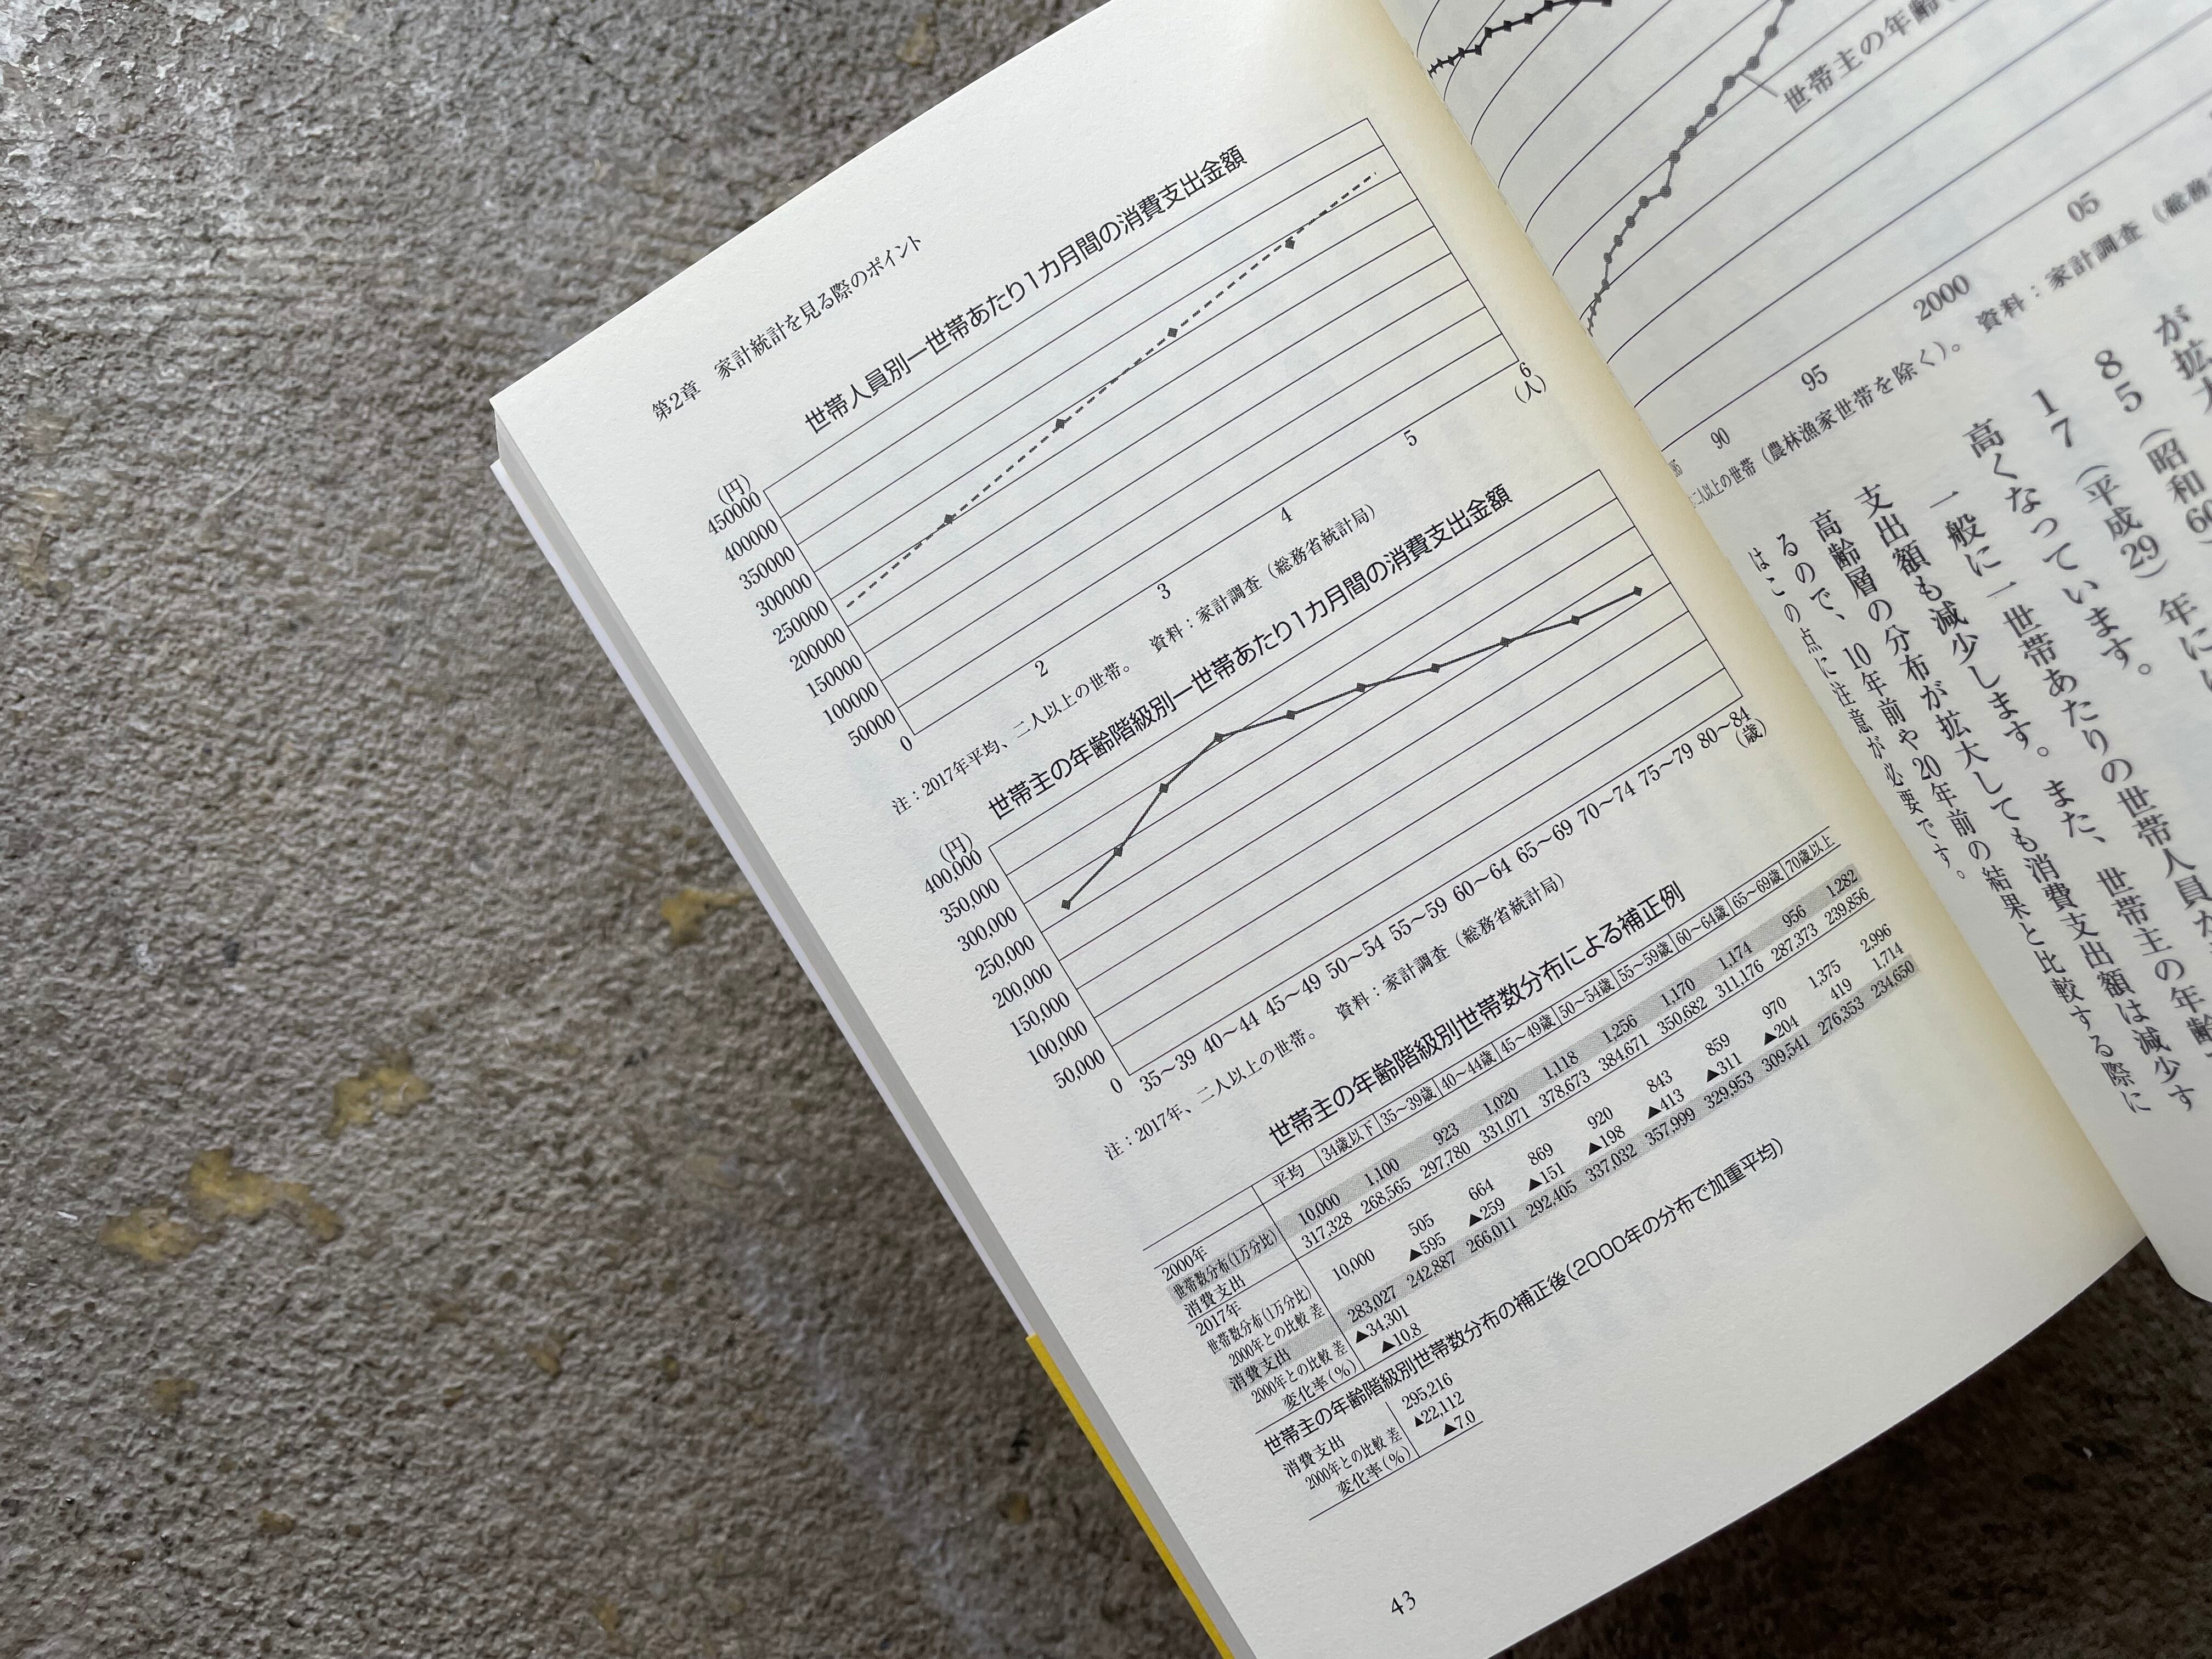 第2章 家計統計を見る際のポイント
世帯人員別一世帯あたり1カ月間の消費支出金額
(円)
450000
400000
350000
300000
250000
200000
150000
100000
50000
0
2 3 4 5 6
(人)
注：2017年平均、二人以上の世帯。 資料：家計調査（総務省統計局）
世帯主の年齢階級別一世帯あたり1カ月間の消費支出金額
(円)
400,000
350,000
300,000
250,000
200,000
150,000
100,000
50,000
0
35〜39 40〜44 45〜49 50〜54 55〜59 60〜64 65〜69 70〜74 75〜79 80〜84
(歳)
注：2017年、二人以上の世帯。 資料：家計調査（総務省統計局）
世帯主の年齢階級別世帯数分布による補正例
平均 34歳以下 35〜39歳 40〜44歳 45〜49歳 50〜54歳 55〜59歳 60〜64歳 65〜69歳 70歳以上
2000年
世帯数分布(1万分比) 10,000 1,100 923 1,020 1,118 1,256 1,170 1,174 956 1,282
消費支出 317,328 268,565 297,780 331,071 378,673 384,671 350,682 311,176 287,373 239,856
2017年
世帯数分布(1万分比) 10,000 505 664 869 920 843 859 970 1,375 2,996
2000年との比較 差 ▲595 ▲259 ▲151 ▲198 ▲413 ▲311 ▲204 419 1,714
消費支出 283,027 242,887 266,011 292,405 337,032 357,999 329,953 309,541 276,353 234,650
2000年との比較 差 ▲34,301
変化率(%) ▲10.8
世帯主の年齢階級別世帯数分布の補正後(2000年の分布で加重平均)
消費支出 295,216
2000年との比較 差 ▲22,112
変化率(%) ▲7.0
43
世帯主の年齢
85 90 95 2000 05
二人以上の世帯（農林漁家世帯を除く）。 資料：家計調査（総務
が拡大
85（昭和60）
17（平成29）年に
高くなっています。
一般に一世帯あたりの世帯人員が
支出額も減少します。また、世帯主の年齢
高齢層の分布が拡大しても消費支出額は減少す
るので、10年前や20年前の結果と比較する際に
はこの点に注意が必要です。